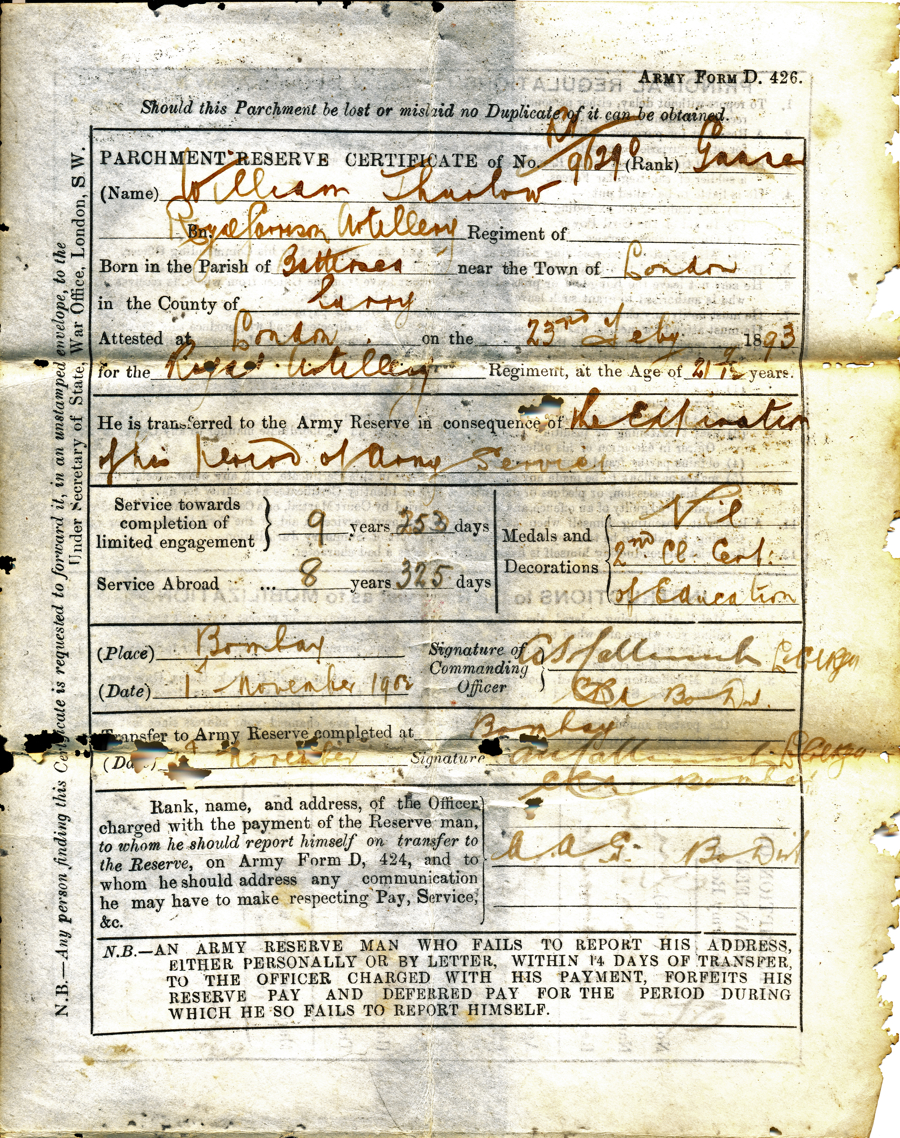 ARMY FORM D. 426.
Should this Parchment be lost or mislaid no Duplicate of it can be obtained.
PARCHMENT RESERVE CERTIFICATE of No. 96298 (Rank) Gunner
(Name) William Thurlow
Royal Garrison Artillery Regiment of
Born in the Parish of Battersea near the Town of London
in the County of Surrey
Attested at London on the 23rd Feby 1893
for the Royal Artillery Regiment, at the Age of 21 years.
He is transferred to the Army Reserve in consequence of the Expiration
of his Period of Army Service
Service towards completion of limited engagement } 9 years 253 days
Service Abroad ... 8 years 325 days
Medals and Decorations { Nil
2nd Cl Cert.
of Education
(Place) Bombay
(Date) 1st November 1902
Signature of Commanding Officer } Lt Col RGA
Transfer to Army Reserve completed at Bombay
(Date) November Signature Lt Col RGA
Bombay
Rank, name, and address, of the Officer
charged with the payment of the Reserve man,
to whom he should report himself on transfer to
the Reserve, on Army Form D, 424, and to
whom he should address any communication
he may have to make respecting Pay, Service,
&c.
A.A.G. Bo Dist
N.B.—AN ARMY RESERVE MAN WHO FAILS TO REPORT HIS ADDRESS,
EITHER PERSONALLY OR BY LETTER, WITHIN 14 DAYS OF TRANSFER,
TO THE OFFICER CHARGED WITH HIS PAYMENT, FORFEITS HIS
RESERVE PAY AND DEFERRED PAY FOR THE PERIOD DURING
WHICH HE SO FAILS TO REPORT HIMSELF.
N.B.—Any person finding this Certificate is requested to forward it, in an unstamped envelope, to the
Under Secretary of State, War Office, London, S.W.